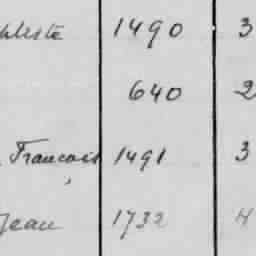 1490 3
640 2
François 1491 3
Jean 1732 4